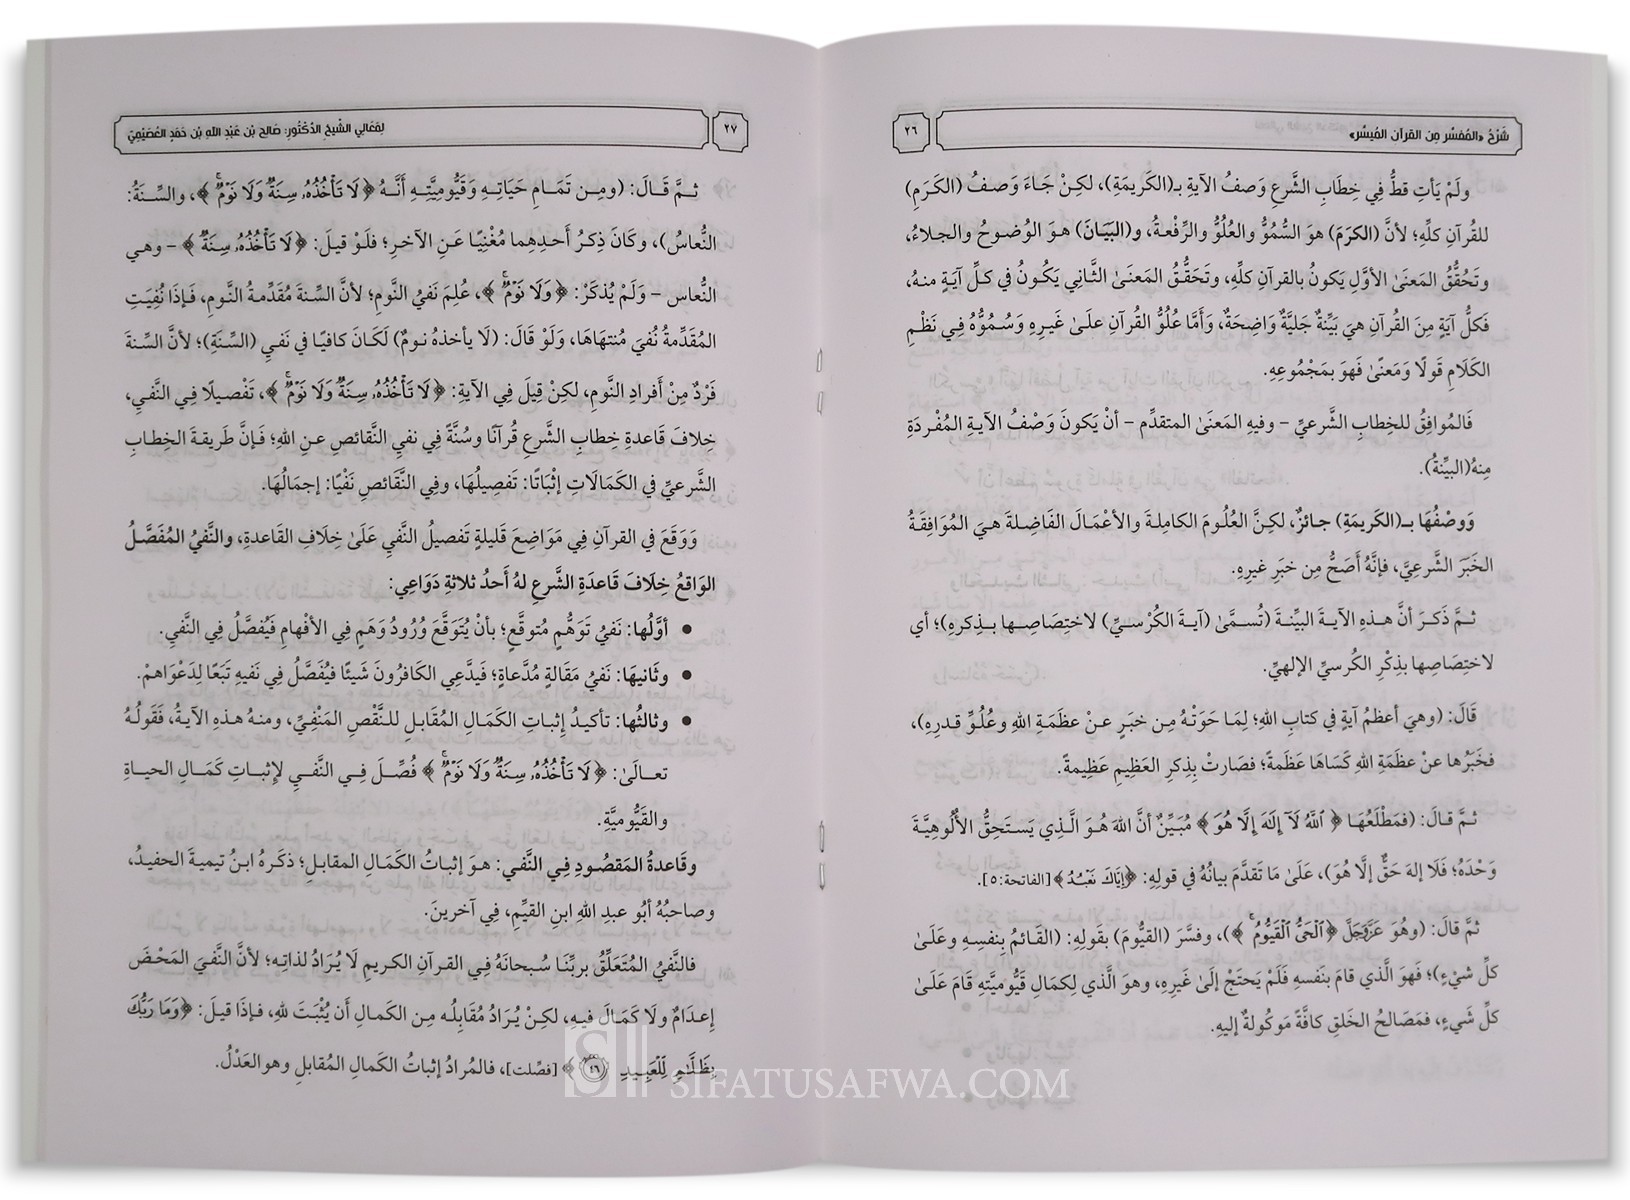 شَرْحُ «المُفَسَّر مِن القرآن المُيسَّر»
٢٦
ولَمْ يَأتِ قطُّ فِي خِطَابِ الشَّرعِ وَصفُ الآيةِ بـ(الكَرِيمَةِ)، لكِنْ جَاءَ وَصفُ (الكَرَمِ)
للقُرآنِ كلِّهِ؛ لأنَّ (الكرَمَ) هوَ السُّمُوُّ والعُلُوُّ والرِّفْعةُ، و(البَيَانَ) هوَ الوُضوحُ والجلاءُ،
وتَحُقُّقُ المَعنَىٰ الأوَّلِ يَكونُ بالقرآنِ كلِّهِ، وتَحَقُّقُ المَعنَىٰ الثَّانِي يَكُونُ في كلِّ آيَةٍ منهُ،
فَكلُّ آيَةٍ مِنَ القُرآنِ هيَ بَيِّنةٌ جَليَّةٌ وَاضِحَةٌ، وَأمَّا عُلُوُّ القُرآنِ علَىٰ غَيرِهِ وَسُمُوُّهُ فِي نَظْمِ
الكَلَامِ قَولًا وَمَعنًىٰ فَهوَ بمَجْمُوعِهِ.
فَالمُوافِقُ للخِطابِ الشَّرعيِّ – وفيهِ المَعنَىٰ المتقدِّم – أنْ يَكونَ وَصْفُ الآيةِ المُفْرَدَةِ
مِنهُ(البيِّنةُ).
وَوصْفُهَا بـ(الكَرِيمَةِ) جائزٌ، لكنَّ العُلُومَ الكامِلةَ والأعْمَالَ الفَاضِلةَ هيَ المُوَافِقَةُ
الخَبَرَ الشَّرعِيَّ، فإنَّهُ أَصَحُّ مِن خبَرِ غيرِهِ.
ثمَّ ذَكرَ أنَّ هـذِهِ الآيةَ البيِّنةَ (تُسمَّىٰ (آيةَ الكُرْسـيِّ) لاختِصَاصِـها بـذِكرِهِ)؛ أي
لاختِصَاصِها بذِكْرِ الكُرسيِّ الإلهيِّ.
قَالَ: (وهيَ أعظمُ آيةٍ في كتابِ اللهِ؛ لِمَا حَوَتْهُ مِن خبَرٍ عنْ عظَمَةِ اللهِ وعُلُوِّ قدرِهِ)،
فخَبَرُها عنْ عظَمَةِ اللهِ كَسَاهَا عظَمَةً؛ فصَارتْ بِذِكرِ العَظِيمِ عَظِيمةً.
ثمَّ قالَ: (فمَطْلَعُهَا ﴿ ٱللَّهُ لَآ إِلَٰهَ إِلَّا هُوَ ﴾ مُبَيِّنٌ أنَّ اللهَ هوَ الَّذِي يَستَحِقُّ الأُلُوهِيَّةَ
وَحْدَهُ؛ فَلَا إلهَ حَقٌّ إلَّا هُوَ)، عَلَىٰ مَا تَقدَّمَ بيانُهُ في قولِهِ: ﴿إِيَّاكَ نَعْبُدُ﴾ [الفاتحة:٥].
ثمَّ قالَ: (وهُوَ عَزَّوَجَلَّ ﴿ٱلْحَيُّ ٱلْقَيُّومُ ۚ ﴾)، وفسَّرَ (القيُّومَ) بقَولِهِ: (القَائمُ بِنَفسِهِ وعَلَىٰ
كلِّ شيْءٍ)؛ فهَوَ الَّذي قامَ بنَفسهِ فلَمْ يَحتَجْ إلَىٰ غَيرِهِ، وهوَ الَّذي لِكمَالِ قَيُّوميَّتِهِ قَامَ عَلَىٰ
كلِّ شَيءٍ، فمَصَالحُ الخَلقِ كافَّةً مَوكُولةٌ إليهِ.
٢٧
لِمَعَالِي الشَّيخِ الدُّكْتُورِ: صَالِحِ بْنِ عَبْدِ اللَّهِ بْنِ حَمَدٍ العُصَيْمِيِّ
ثمَّ قَـالَ: (ومِـن تَمَـامِ حَيَاتِـهِ وَقَيُّومِيَّتِـهِ أنَّـهُ ﴿لَا تَأْخُذُهُۥ سِنَةٌ وَلَا نَوْمٌ ۚ ﴾، والسِّنَةُ:
النُّعاسُ)، وكَانَ ذِكرُ أحَدِهِما مُغْنِيًا عَنِ الآخرِ؛ فلَوْ قيلَ: ﴿لَا تَأْخُذُهُۥ سِنَةٌ ﴾ – وهي
النُّعاس – ولَمْ يُذكَرْ: ﴿ وَلَا نَوْمٌ ۚ ﴾، عُلِمَ نَفيُ النَّومِ؛ لأنَّ السِّنةَ مُقَدِّمةُ النَّومِ، فَإذَا نُفِيَتِ
المُقَدِّمةُ نُفيَ مُنتهَاهَا، ولَوْ قَالَ: (لَا يأخذهُ نومٌ) لكَانَ كافيًا في نَفيِ (السِّنَةِ)؛ لأنَّ السِّنةَ
فَرْدٌ مِنْ أفرادِ النَّومِ، لكِنْ قِيلَ فِي الآيةِ: ﴿ لَا تَأْخُذُهُۥ سِنَةٌ وَلَا نَوْمٌ ۚ ﴾، تَفْصيلًا فِي النَّفيِ،
خِلافَ قَاعدةِ خِطابِ الشَّرعِ قُرآنًا وسُنَّةً فِي نفيِ النَّقائصِ عـنِ اللهِ؛ فـإنَّ طَريقـةَ الخِطـابِ
الشَّرعيِّ في الكَمَالَاتِ إثبَاتًا: تَفصِيلُهَا، وفِي النَّقَائصِ نَفْيًا: إجمَالُهَا.
وَوَقعَ في القرآنِ فِي مَوَاضعَ قَليلةٍ تَفصيلُ النَّفيِ عَلَىٰ خِلَافِ القَاعدةِ، والنَّفيُ المُفَصَّلُ
الوَاقعُ خِلَافَ قَاعدَةِ الشَّرعِ لهُ أحدُ ثلاثةِ دَوَاعِي:
• أوَّلُها: نَفيُ تَوَهُّمٍ مُتوقَّعٍ؛ بأنْ يُتَوَقَّعَ وُرُودُ وَهَمٍ فِي الأفْهامِ فَيُفصَّلُ فِي النَّفيِ.
• وثَانيهَا: نَفيُ مَقَالةٍ مُدَّعاةٍ؛ فيَدَّعِي الكَافرُونَ شَيئًا فيُفَصَّلُ فِي نَفيهِ تَبَعًا لِدَعْوَاهمْ.
• وثالثُها: تأكيدُ إثبـاتِ الكَمَـالِ المُقَابـلِ للـنَّقْصِ المَنْفِـيِّ، ومنـهُ هـذِهِ الآيـةُ، فَقَولُـهُ
تعـالَىٰ: ﴿ لَا تَأْخُذُهُۥ سِنَةٌ وَلَا نَوْمٌ ۚ ﴾ فُصِّلَ فِـي النَّفـيِ لإثبـاتِ كمَـالِ الحيـاةِ
والقَيُّوميَّةِ.
وقَاعدةُ المَقصُودِ فِـي النَّفـيِ: هـوَ إثبـاتُ الكَمَـالِ المقابـلِ؛ ذكَـرَهُ ابـنُ تيميـةَ الحفيدُ،
وصاحبُهُ أبُو عبدِ اللهِ ابنِ القيِّمِ، فِي آخرينَ.
فالنَّفيُ المُتَعلِّقُ بربِّنَا سُبحانَهُ فِي القرآنِ الكريمِ لَا يُرَادُ لذاتِـهِ؛ لأنَّ النَّفيَ المَحْضَ
إعدَامٌ ولَا كمَـالَ فيـهِ، لكِـنْ يُـرَادُ مُقَابِلُـه مِـن الكمَـالِ أن يُثْبَتَ للهِ، فـإذَا قيـلَ: ﴿وَمَا رَبُّكَ
بِظَلَّٰمٍ لِّلْعَبِيدِ ٤٦﴾ [فصِّلت]، فالمُرادُ إثباتُ الكمالِ المُقابلِ وهو العَدْلُ.
SIFATUSAFWA.COM